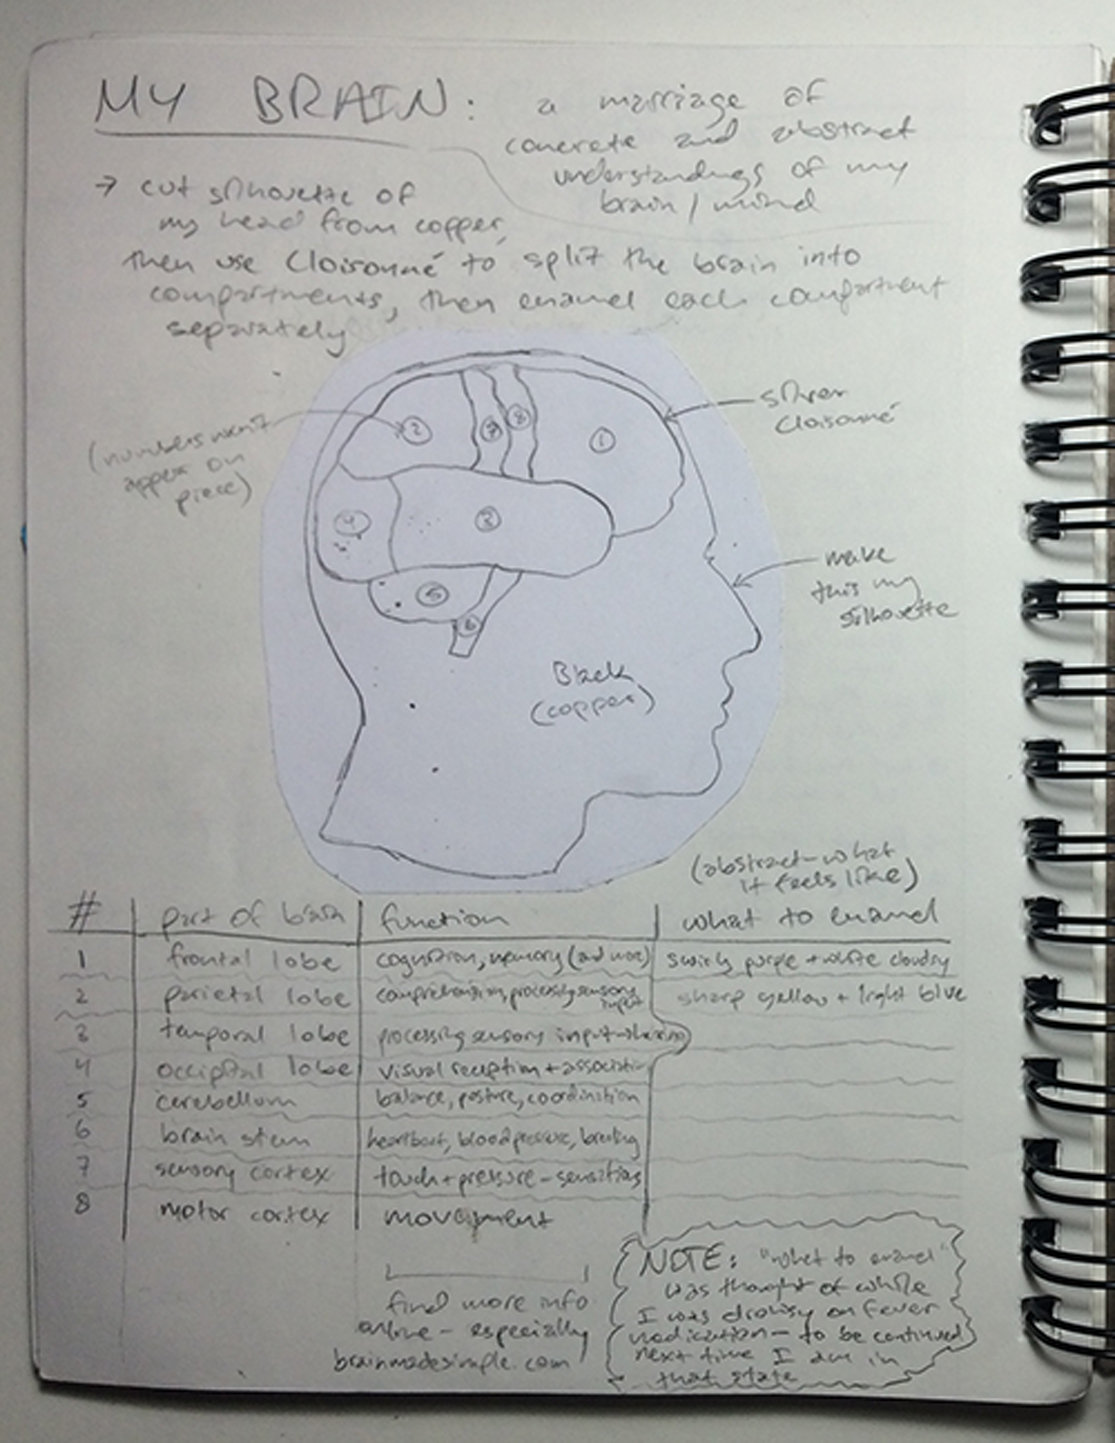 MY BRAIN: a marriage of
concrete and abstract
understandings of my
brain / mind
→ cut silhouette of
my head from copper,
then use Cloisonné to split the brain into
compartments, then enamel each compartment
separately
silver
Cloisonné
(numbers won't
appear on
piece)
2
7
8
1
4
3
5
6
make
this my
silhouette
Black
(copper)
(abstract - what
it feels like)
# part of brain function what to enamel
1 frontal lobe cognition, memory (and more) swirly purple + white cloudy
2 parietal lobe comprehension, processing sensory input sharp yellow + light blue
3 temporal lobe processing sensory input
4 occipital lobe visual reception + association
5 cerebellum balance, posture, coordination
6 brain stem heartbeat, blood pressure, breathing
7 sensory cortex touch + pressure - sensations
8 motor cortex movement
find more info
online - especially
brainmadesimple.com
NOTE: "what to enamel"
was thought of while
I was drowsy on fever
medication - to be continued
next time I am in
that state